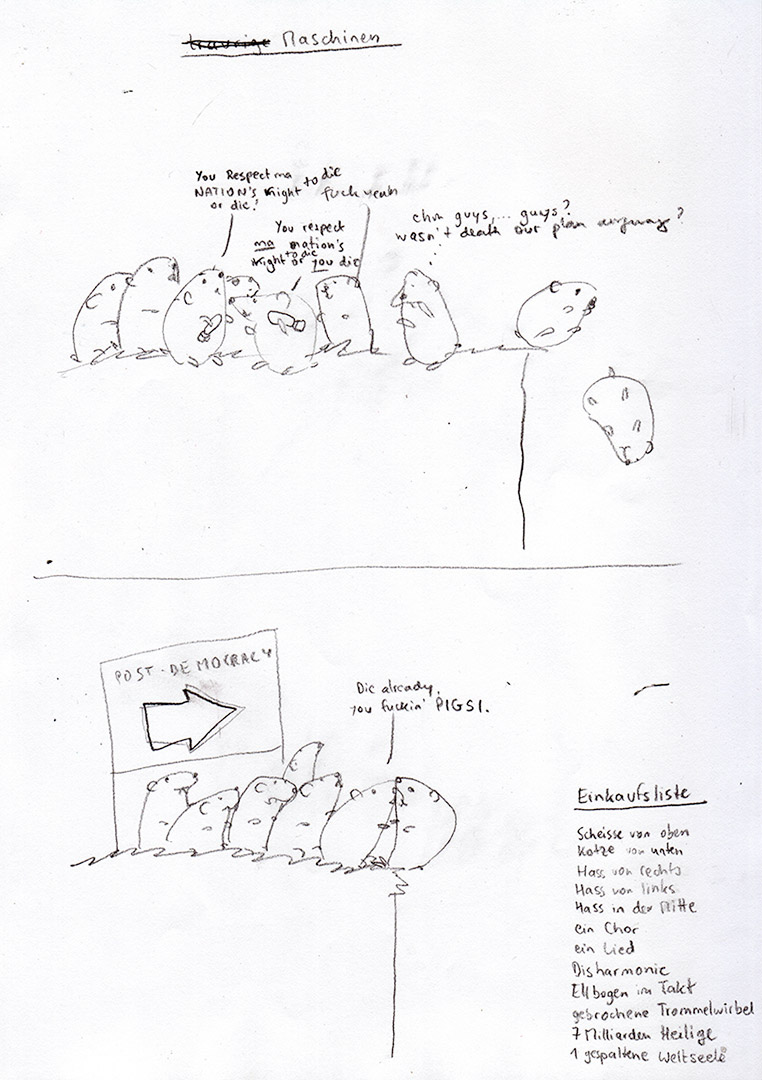 traurige Maschinen
You Respect ma
NATION's right to die
or die!
fuck yeah
You respect
ma nation's
right to die
or you die
ehm guys,... guys?
wasn't death our plan anyway?
POST-DEMOCRACY
Die already,
you fuckin' PIGS!.
Einkaufsliste
Scheisse von oben
Kotze von unten
Hass von rechts
Hass von links
Hass in der Mitte
ein Chor
ein Lied
Disharmonie
Ellbogen im Takt
gebrochene Trommelwirbel
7 Milliarden Heilige
1 gespaltene Weltseele